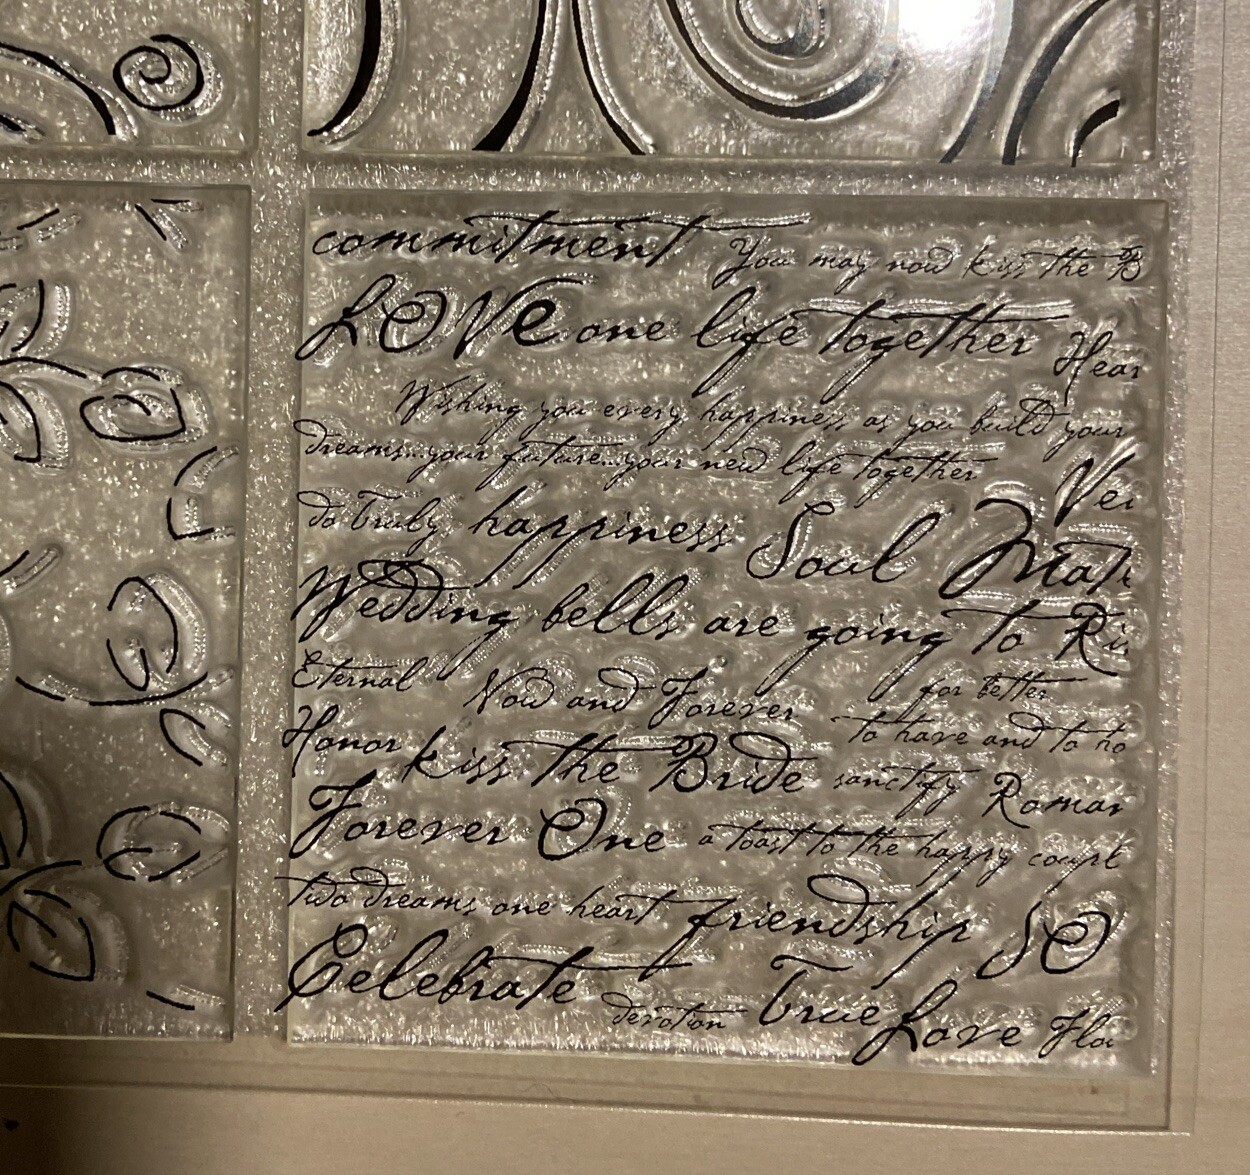 commitment You may now kiss the B
LOVe one life together Hear
Wishing you every happiness as you build your
dreams...your future...your new life together Ver
do Truly happiness Soul Mate
Wedding bells are going to Ri
Eternal Now and Forever for better
Honor kiss the Bride to have and to ho
sanctify Roman
Forever One a toast to the happy coupl
two dreams one heart friendship
Celebrate devotion True Love Flo